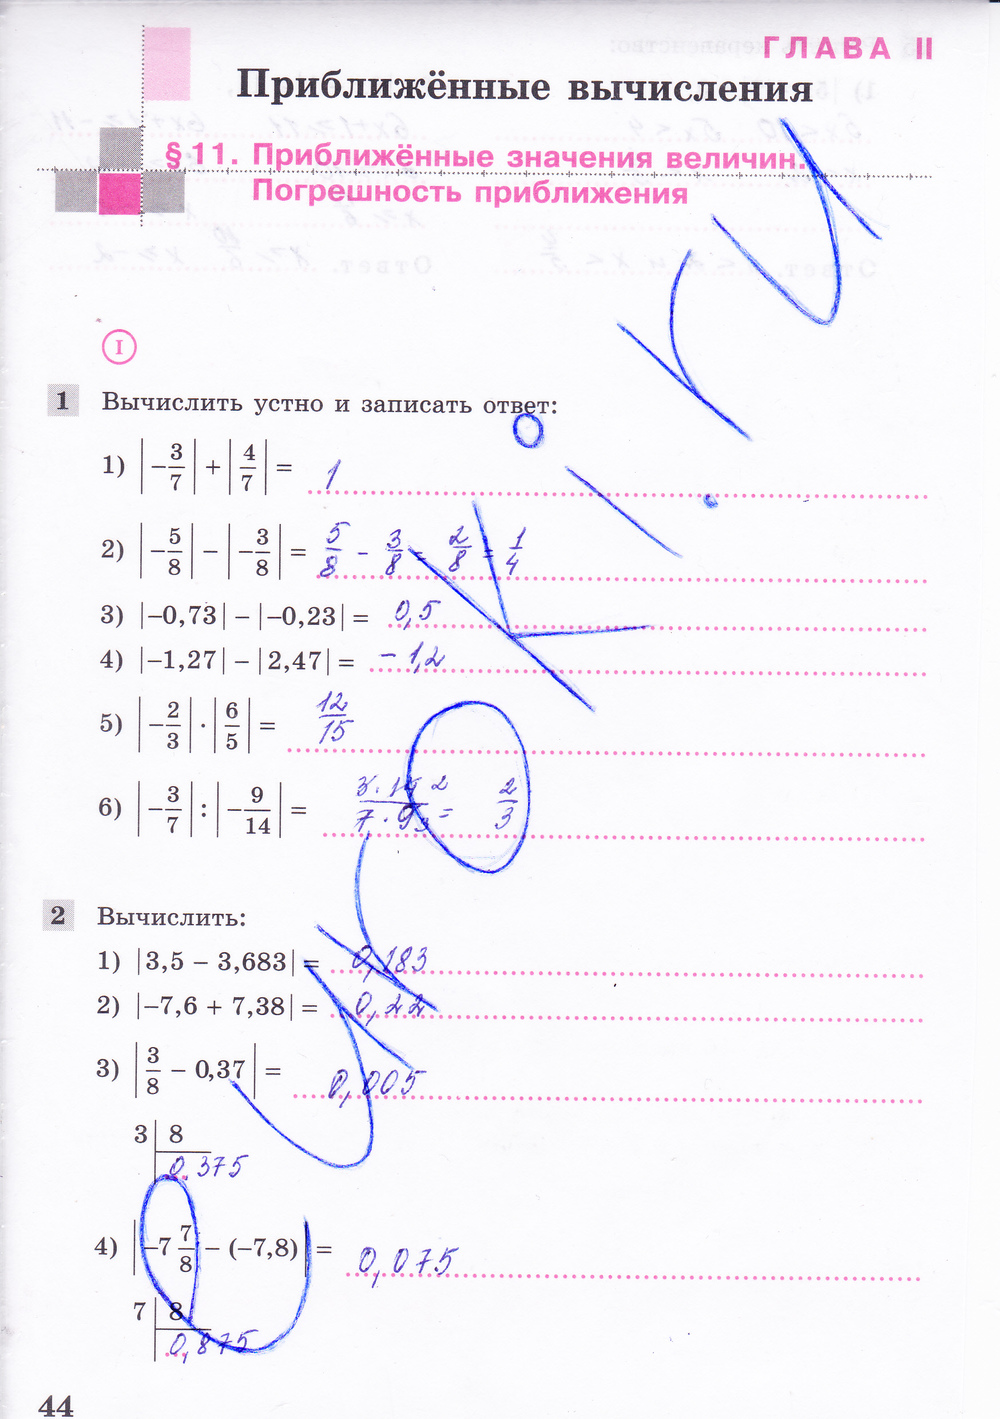 ГЛАВА II
Приближённые вычисления
§ 11. Приближённые значения величин.
Погрешность приближения
I
1 Вычислить устно и записать ответ:
1) |−3/7| + |4/7| = 1
2) |−5/8| − |−3/8| = 5/8 − 3/8 = 2/8 = 1/4
3) |−0,73| − |−0,23| = 0,5
4) |−1,27| − |2,47| = −1,2
5) |−2/3| · |6/5| = 12/15
6) |−3/7| : |−9/14| = 3·14 2/7·9 3 = 2/3
2 Вычислить:
1) |3,5 − 3,683| = 0,183
2) |−7,6 + 7,38| = 0,22
3) |3/8 − 0,37| = 0,005
3 | 8
0,375
4) |−7 7/8 − (−7,8)| = 0,075
7 | 8
0,875
44